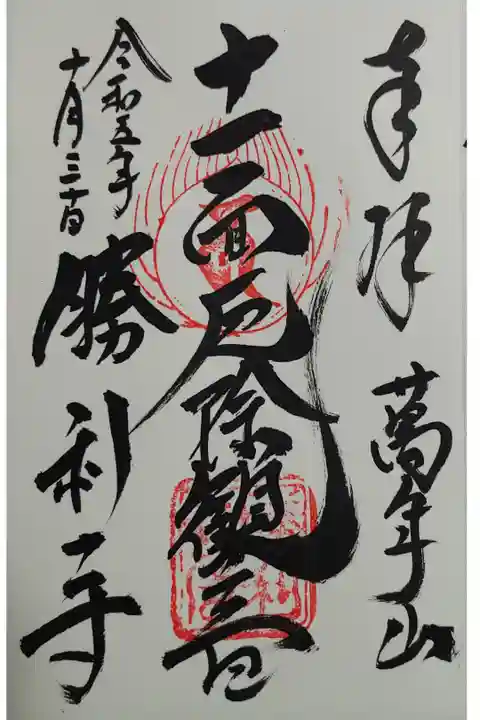 奉拝　萬年山
十一面厄除観世音
令和五年
十月三十日
勝利寺